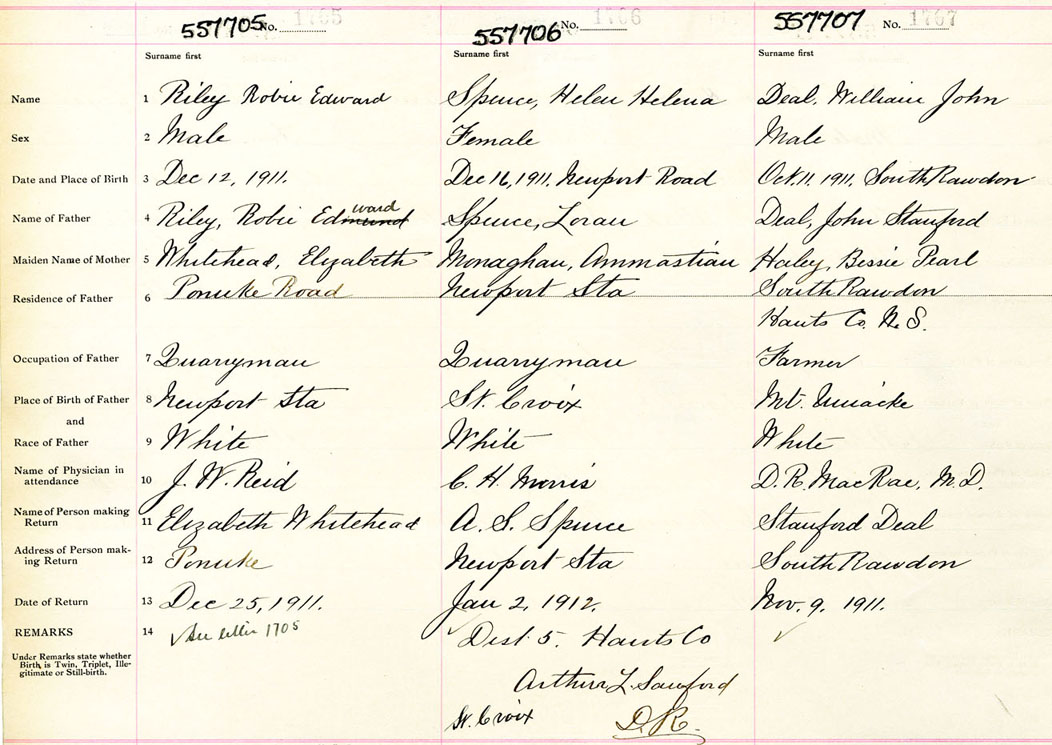 557705 No. 1705 557706 No. 1706 557707 No. 1707
Surname first Surname first Surname first
Name 1 Riley Robie Edward Spence, Helen Helena Deal, William John
Sex 2 Male Female Male
Date and Place of Birth 3 Dec 12, 1911. Dec 16, 1911, Newport Road Oct. 11. 1911, South Rawdon
ward
Name of Father 4 Riley, Robie Edmund Spence, Loran Deal, John Stanford
Maiden Name of Mother 5 Whitehead, Elizabeth Monaghan, Haley, Bessie Pearl
Residence of Father 6 Ponuke Road Newport Sta South Rawdon
Hants Co. N.S.
Occupation of Father 7 Quarryman Quarryman Farmer
Place of Birth of Father 8 Newport Sta St. Croix Mt. Uniacke
and
Race of Father 9 White White White
Name of Physician in
attendance 10 J. W. Reid C. H. Morris D. R. MacRae, M.D.
Name of Person making
Return 11 Elizabeth Whitehead A. S. Spence Stanford Deal
Address of Person mak-
ing Return 12 Ponuke Newport Sta South Rawdon
Date of Return 13 Dec 25, 1911. Jan 2, 1912. Nov. 9, 1911.
REMARKS 14 See letter 1705 Dist 5. Hants Co
Under Remarks state whether
Birth is Twin, Triplet, Ille-
gitimate or Still-birth.
Arthur L. Sanford
St. Croix D.R.